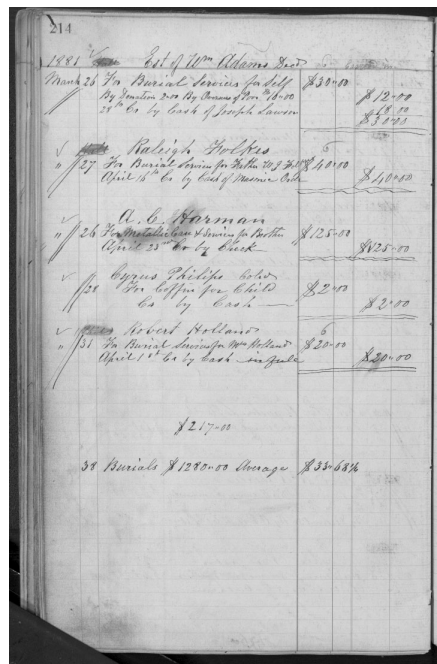 214
1881 Est of Wm Adams Decd
March 26 For Burial Services for Self $30-00
By Donation 2-00 By Overseers of Poor 10-00 $12-00
28th Cr by Cash of Joseph Lawson 18-00
$30-00
Raleigh Folkes
" 27 For Burial Services for Father $40-00
April 16th Cr by Cash of Masonic Order $40-00
A. C. Harman
" 26 For Metallic Case & Services for Brother $125-00
April 23rd Cr by Check $125-00
Cyrus Philips Cold
" 28 For Coffin for Child $2-00
Cr by Cash $2-00
Robert Holland
" 31 For Burial Services for Mrs Holland $20-00
April 1st Cr by Cash in full $20-00
$217-00
38 Burials $1280-00 Average $33-68⅜